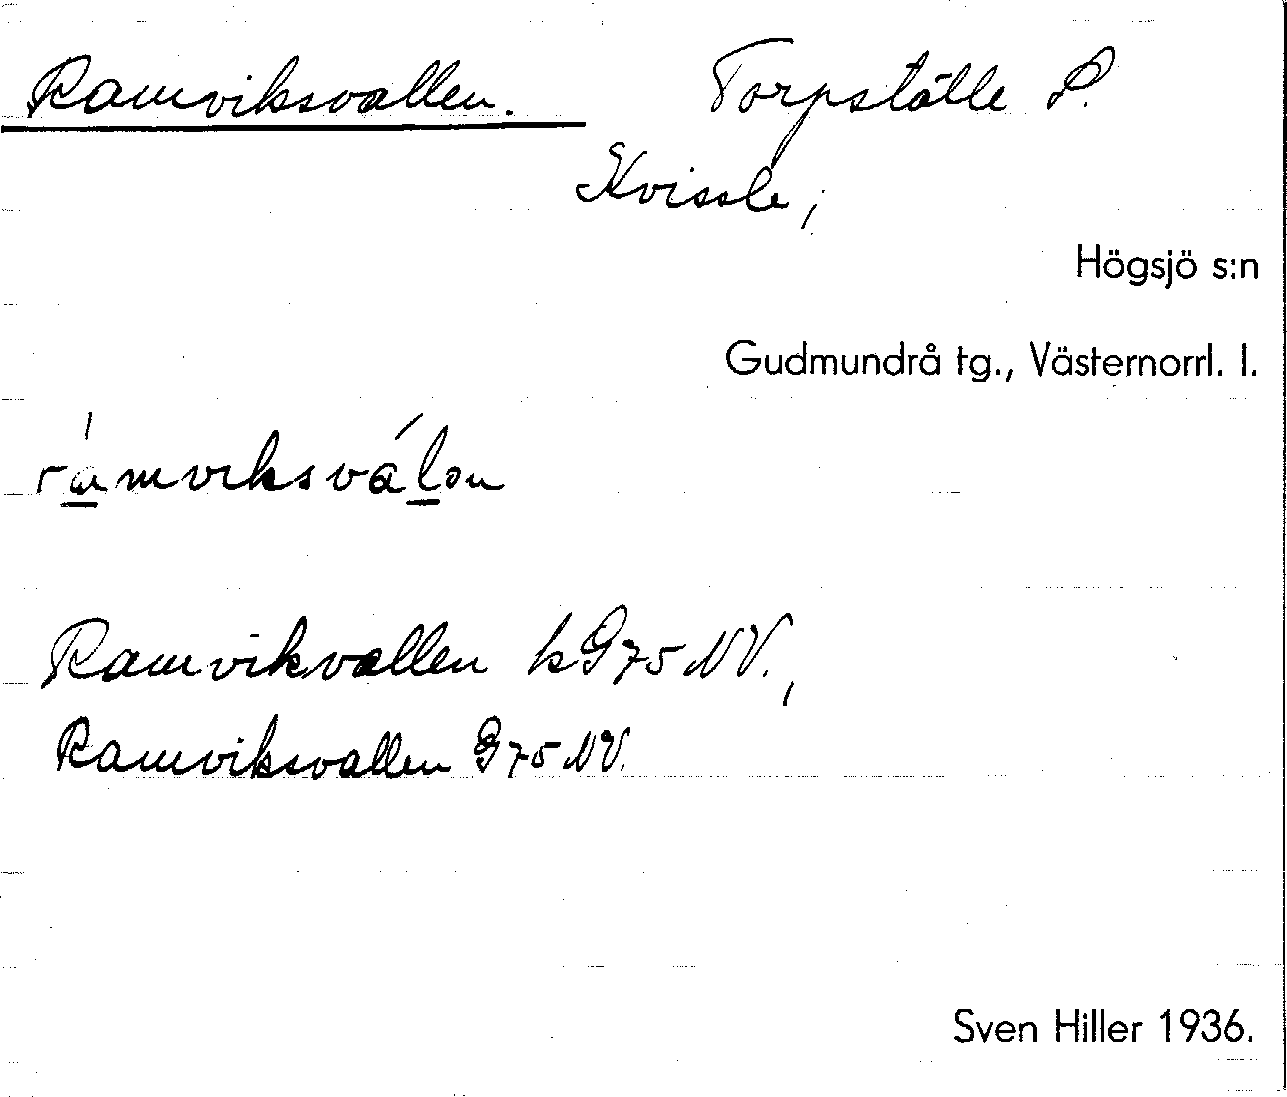 Ramviksvallen. Torpställe P.
Kvissle;
Högsjö s:n
Gudmundrå tg., Västernorrl. l.
rámviksválən
Ramvikvallen kG75NV.,
Ramviksvallen G75NV.
Sven Hiller 1936.